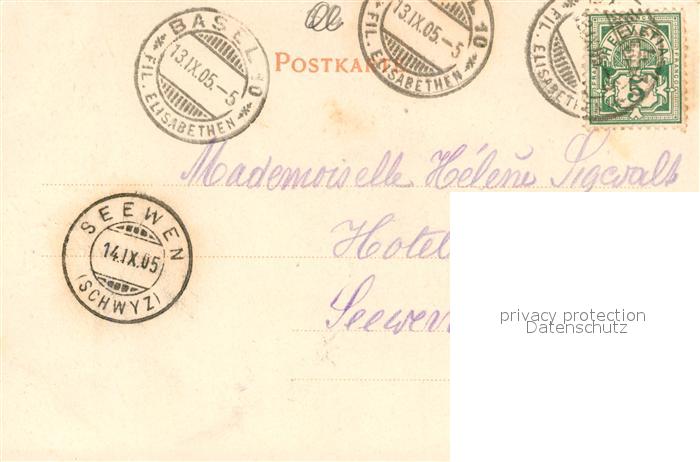 BASEL 10
13.IX.05.-5
FIL. ELISABETHEN
10
13.IX.05.-5
FIL. ELISABETHEN
FIL. ELISABETHEN
HELVETIA
5
POSTKARTE
Mademoiselle Hélène Sigwalt
Hotel
SEEWEN
14.IX.05
(SCHWYZ)
Seewen
privacy protection
Datenschutz